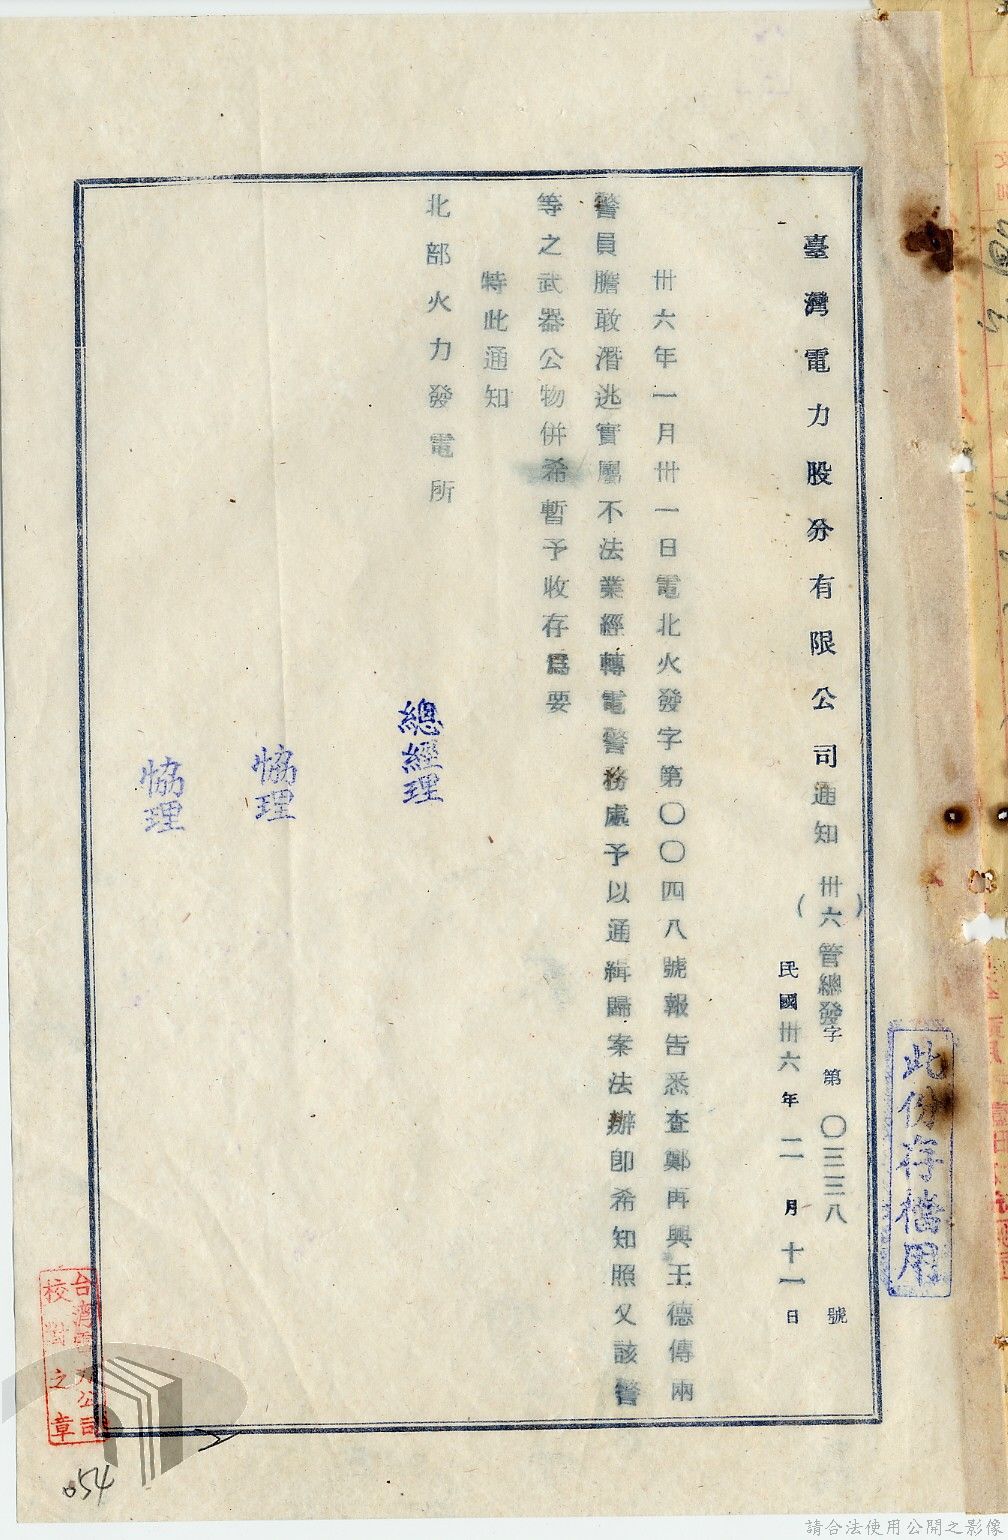 臺灣電力股分有限公司通知
(卅六管總發字第〇三三八號)
民國卅六年二月十一日
卅六年一月卅一日電北火發字第〇〇四八號報告悉查鄭再興王德傳兩
警員膽敢潛逃實屬不法業經轉電警務處予以通緝歸案法辦即希知照又該警
等之武器公物併希暫予收存爲要
特此通知
北部火力發電所
總經理
協理
協理
此份存檔用
台湾電力公司
校對之章
054
請合法使用公開之影像